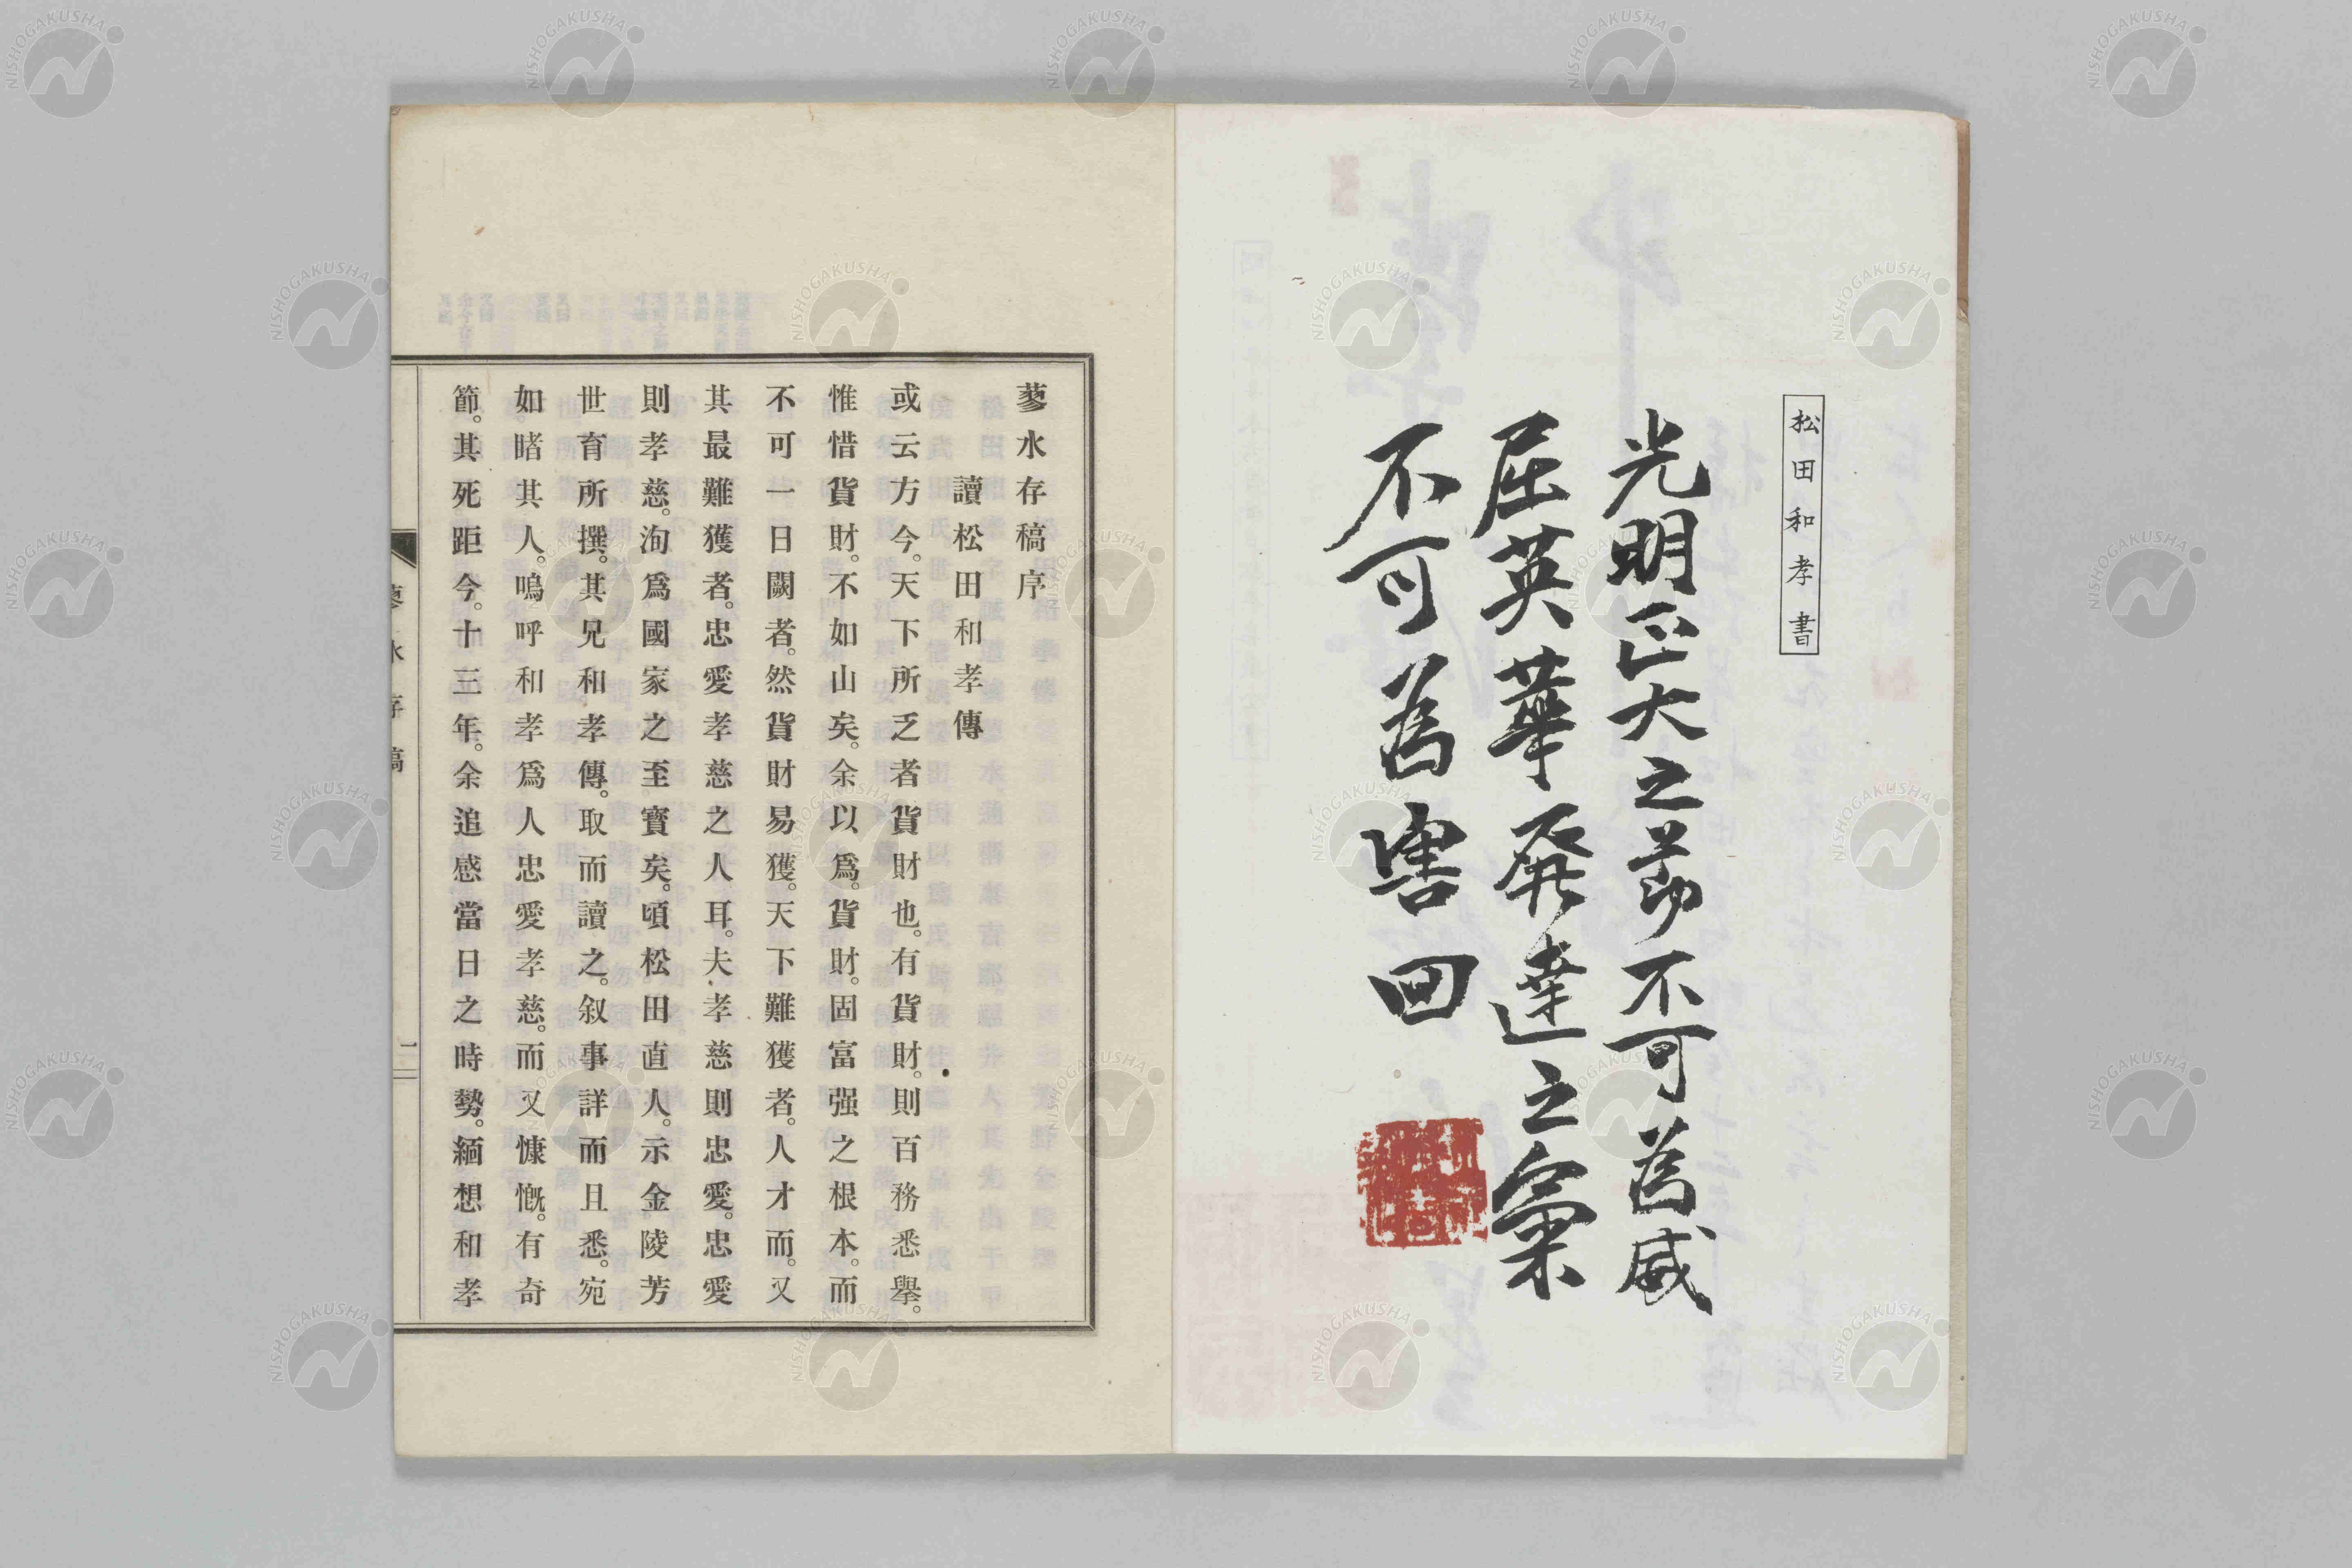 松田和孝書
光明正大之節不可為威
屈英華発達之氣
不可為害回
蓼水存稿序
讀松田和孝傳
或云方今。天下所乏者貨財也。有貨財。則百務悉擧。
惟惜貨財。不如山矣。余以爲。貨財。固富强之根本。而
不可一日闕者。然貨財易獲。天下難獲者。人才而。又
其最難獲者。忠愛孝慈之人耳。夫孝慈則忠愛。忠愛
則孝慈。洵爲國家之至寶矣。頃松田直人。示金陵芳
世育所撰。其兄和孝傳。取而讀之。叙事詳而且悉。宛
如睹其人。嗚呼和孝爲人忠愛孝慈。而又慷慨。有奇
節。其死距今。十三年。余追感當日之時勢。緬想和孝
蓼水存稿
NISHOGAKUSHA